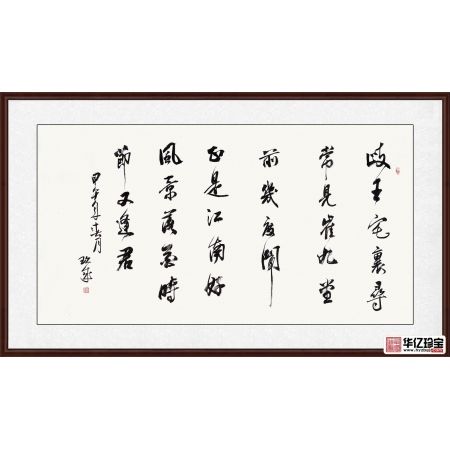 岐王宅裏尋
常見崔九堂
前幾度聞
正是江南好
風景落花時
節又逢君
甲午年春月
华亿珍宝